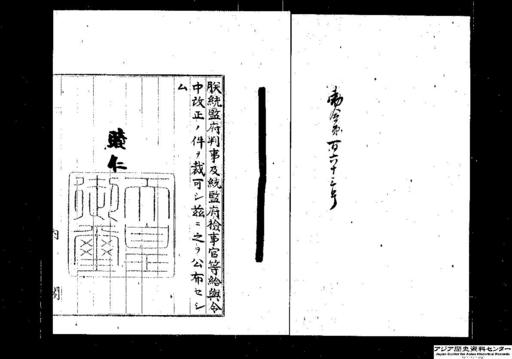 勅令第百六十三号
朕統監府判事及統監府検事官等給与令
中改正ノ件ヲ裁可シ茲ニ之ヲ公布セシ
ム
睦仁
天皇御璽
内閣
アジア歴史資料センター
Japan Center for Asian Historical Records